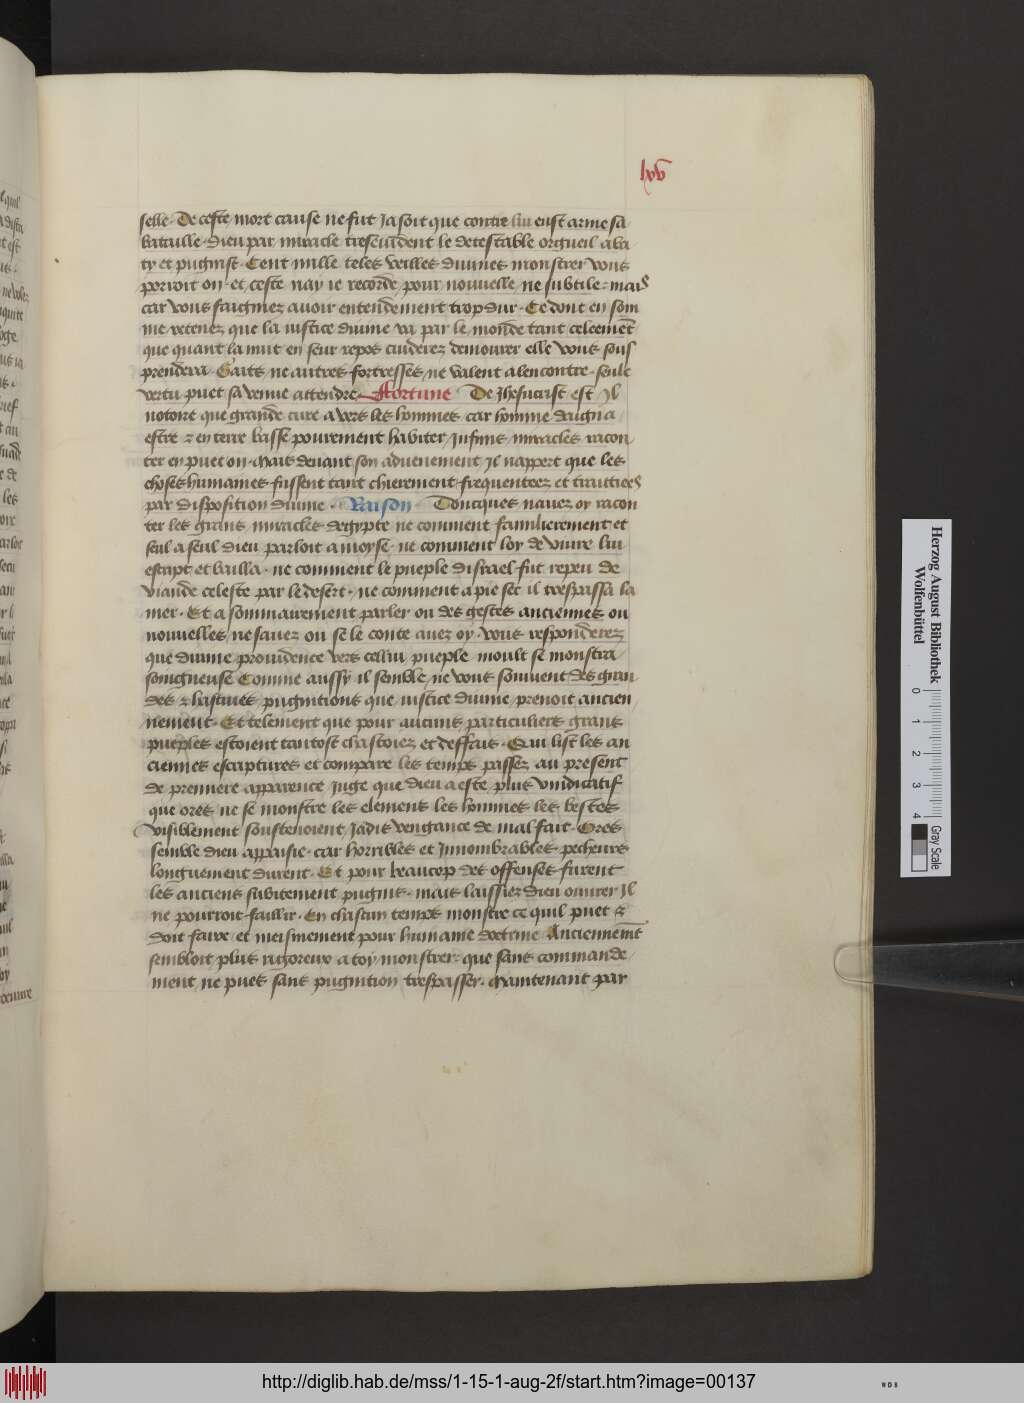 lxv
selle. De ceste mort cause ne fut Ja soit que contre lui eust arme sa
bataille. dieu par miracle tresevident le detestable orgueil aba
ty et pugnist. Cent mille teles veilles divines monstrer vous
porroit on. et ceste nay ie recorde pour nouvelle ne subtile. mais
car vous faigniez avoir entendement trop dur. Ce dont en som
me retenez que la iustice divine va par le monde tant celeemet
que quant la nuit en seur repos cuiderez demourer elle vous sous
prendera. Gaits ne autres fortresses ne valent alencontre. seule
vertu puet sa venue attendre. Fortune De Jhesucrist est Il
notoire que grande cure a vers les hommes car homme daigna
estre et en terre basse povrement habiter Infinis miracles racon
ter en puet on. Mais devant son advenement Il nappert que les
choses humaines fussent tant chierement frequentees et traittiees
par disposition divine. Raison Doncques navez oy racon
ter les grans miracles degypte ne comment familierement et
seul a seul dieu parloit a moyse. ne comment loy de vivre lui
escript et bailla. ne comment le pueple disrael fut repeu de
viande celeste par le desert. ne comment a pie sec il trespassa la
mer. Et a sommairement parler ou des gestes anciennes ou
nouvelles ne savez ou se le conte avez oy. vous responderez
que divine providence vers cellui pueple moult se monstra
soingneuse Comme aussy il semble ne vous souvient des gran
des et hastives pugnitions que iustice divine prenoit ancien
nement. Et telement que pour aucuns particuliers grans
pueples estoient tantost chastoiez et deffais. Qui list les an
ciennes escriptures et compare les temps passez au present
de premiere apparence Juge que dieu a este plus vindicatif
que ores ne se monstre les elemens les hommes les bestes
visiblement soustenoient Jadis vengance de mal fait. Ores
semble dieu appaisie. car horribles et Innombrables pecheurs
longuement durent. Et pour beaucop des offenses furent
les anciens subitement pugnis. mais laissiez dieu ouvrer Il
ne pourroit faillir. En chascun temps monstre ce quil puet et
doit faire. et meismement pour humaine doctrine Anciennemt
sembloit plus rigoreux a toy monstrer. que sans commande
ment ne pues sans pugnition trespasser. Maintenant par
Herzog August Bibliothek
Wolfenbüttel
0 1 2 3 4
Gray Scale
http://diglib.hab.de/mss/1-15-1-aug-2f/start.htm?image=00137